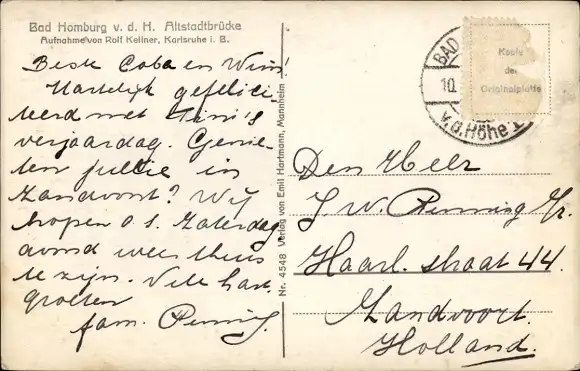 Bad Homburg v. d. H. Altstadtbrücke
Aufnahme von Rolf Kellner, Karlsruhe i. B.
Beste Coba en Wim!
Hartelijk gefelici-
teerd met Tini's
verjaardag. Genie-
ten jullie in
Zandvoort? Wij
hopen a.s. Zaterdag
avond weer thuis
te zijn. Vele hart.
groeten
fam. Penning.
Nr. 4548 Verlag von Emil Hartmann, Mannheim
BAD
10.
v.d. Höhe
Kopie
der
Originalplatte
Den Heer
J. W. Penning Jr.
Haarl. straat 44.
Zandvoort.
Holland.